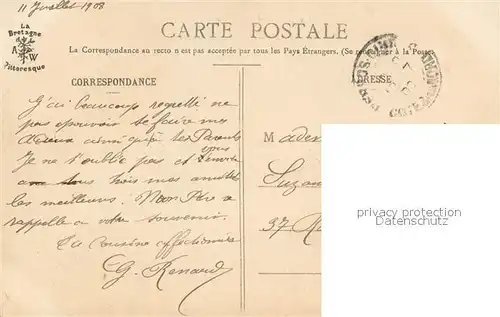 11 Juillet 1908
La Bretagne
A W
Pittoresque
CARTE POSTALE
La Correspondance au recto n est pas acceptée par tous les Pays Étrangers. (Se renseigner à la Poste)
CORRESPONDANCE
ADRESSE
J'ai beaucoup regretté ne
pas pouvoir te faire mes
adieux ainsi qu'à tes Parents
Je ne t'oublie pas et vous envoie
à tous trois mes amitiés
les meilleures. Mon Père se
rappelle à votre souvenir.
Ta cousine affectionnée
G. Renard
Madem
Suzan
37 R
property protection
property protection